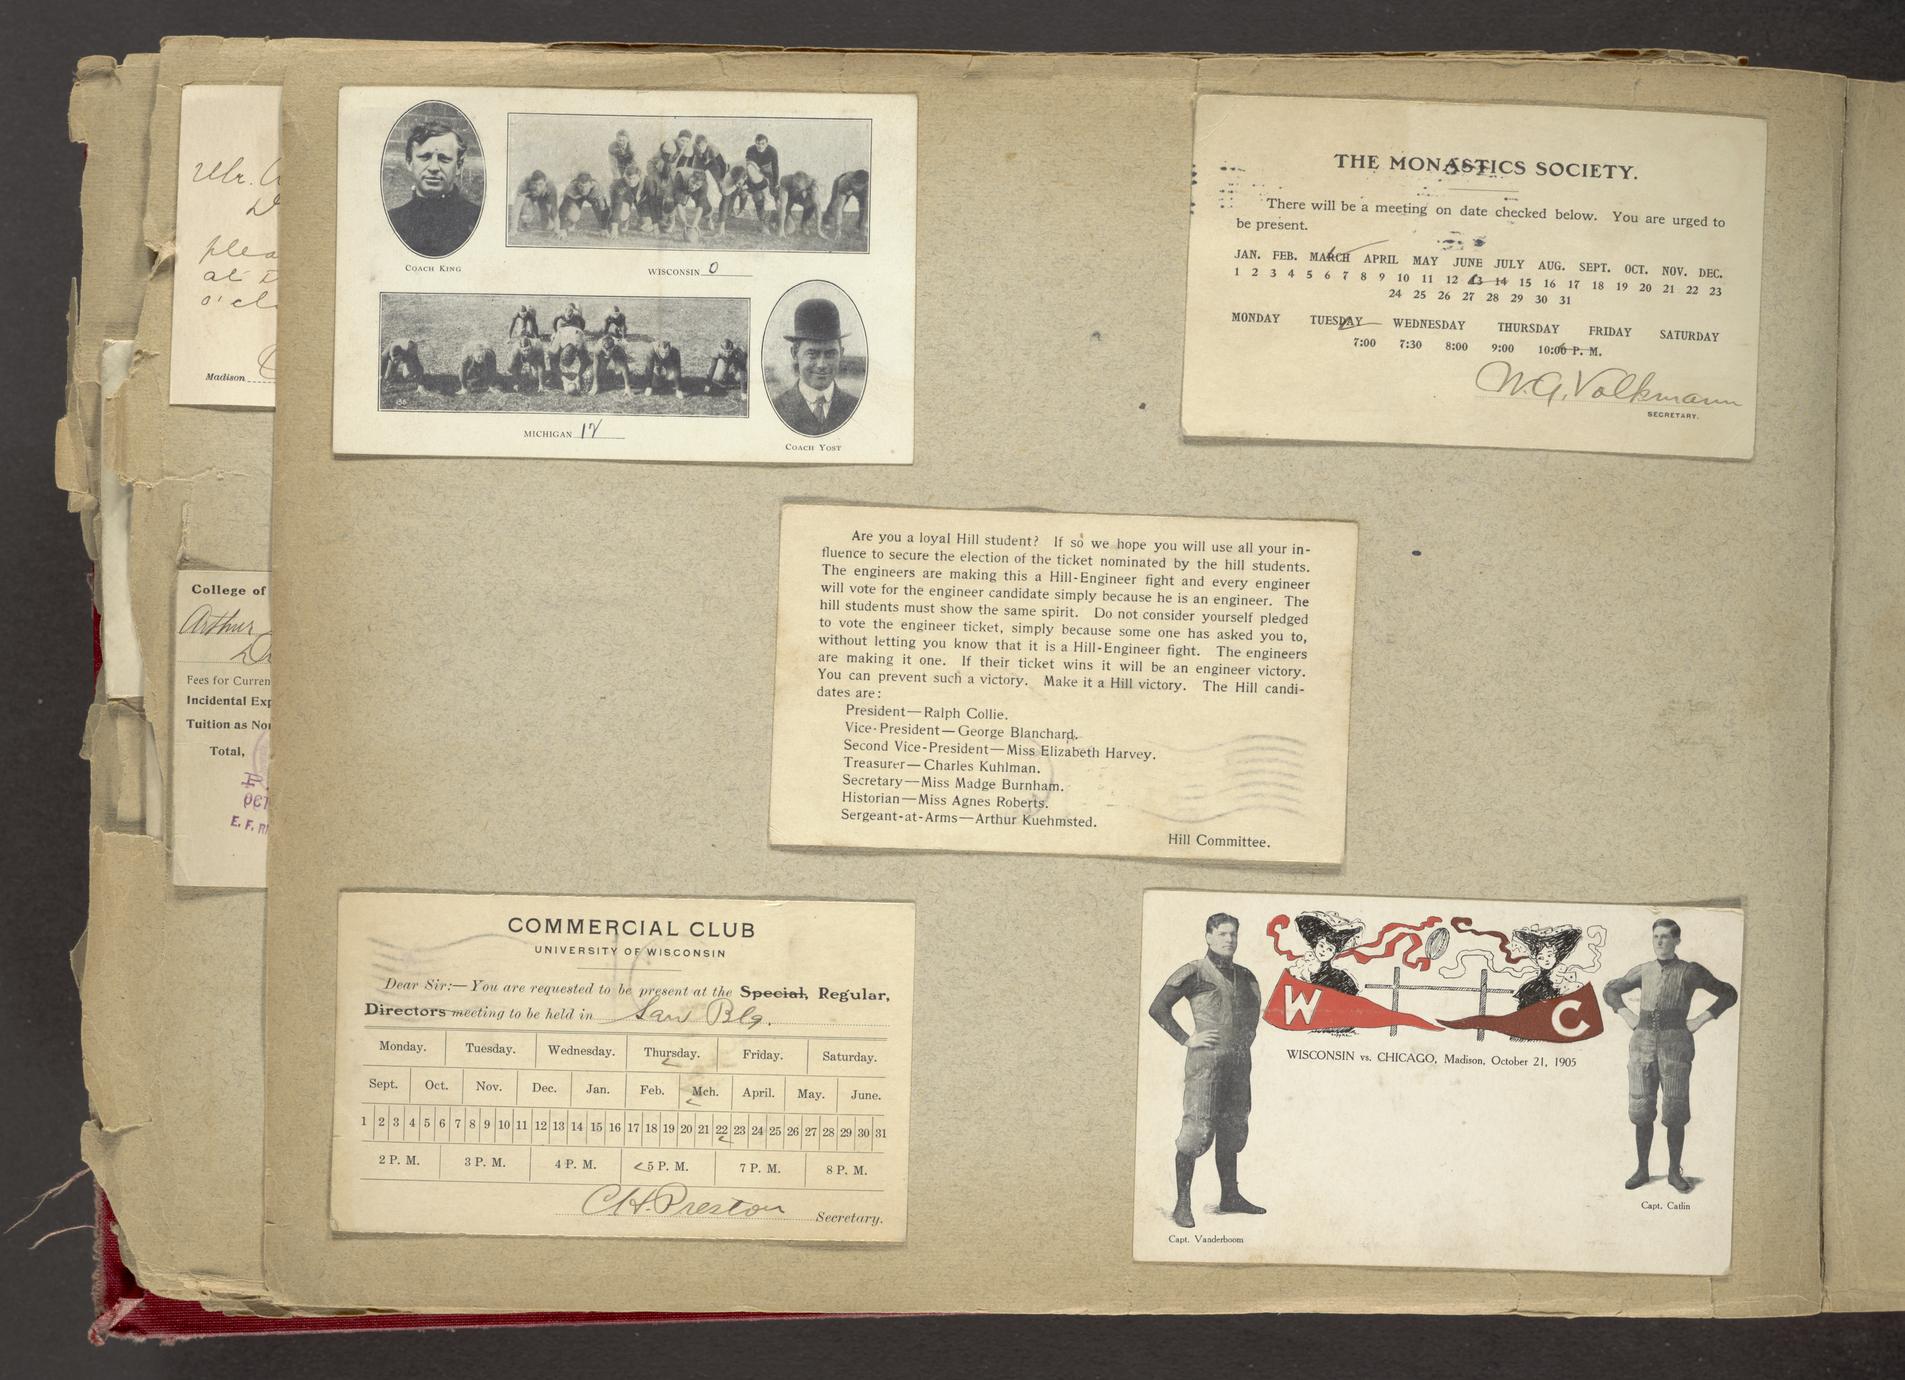 Mr. A
plea
at
o'clo
Madison
College of
Arthur
Fees for Curren
Incidental Exp
Tuition as Non
Total,
OCT
E. F. R
COACH KING
WISCONSIN 0
MICHIGAN 12
COACH YOST
THE MONASTICS SOCIETY.
There will be a meeting on date checked below. You are urged to
be present.
JAN. FEB. MARCH APRIL MAY JUNE JULY AUG. SEPT. OCT. NOV. DEC.
1 2 3 4 5 6 7 8 9 10 11 12 13 14 15 16 17 18 19 20 21 22 23
24 25 26 27 28 29 30 31
MONDAY TUESDAY WEDNESDAY THURSDAY FRIDAY SATURDAY
7:00 7:30 8:00 9:00 10:00 P. M.
W. G. Volkmann
SECRETARY.
Are you a loyal Hill student? If so we hope you will use all your in-
fluence to secure the election of the ticket nominated by the hill students.
The engineers are making this a Hill-Engineer fight and every engineer
will vote for the engineer candidate simply because he is an engineer. The
hill students must show the same spirit. Do not consider yourself pledged
to vote the engineer ticket, simply because some one has asked you to,
without letting you know that it is a Hill-Engineer fight. The engineers
are making it one. If their ticket wins it will be an engineer victory.
You can prevent such a victory. Make it a Hill victory. The Hill candi-
dates are:
President—Ralph Collie.
Vice-President—George Blanchard.
Second Vice-President—Miss Elizabeth Harvey.
Treasurer—Charles Kuhlman.
Secretary—Miss Madge Burnham.
Historian—Miss Agnes Roberts.
Sergeant-at-Arms—Arthur Kuehmsted.
Hill Committee.
COMMERCIAL CLUB
UNIVERSITY OF WISCONSIN
Dear Sir:—You are requested to be present at the Special, Regular,
Directors meeting to be held in Law Blg.
Monday. Tuesday. Wednesday. Thursday. Friday. Saturday.
Sept. Oct. Nov. Dec. Jan. Feb. Mch. April. May. June.
1 2 3 4 5 6 7 8 9 10 11 12 13 14 15 16 17 18 19 20 21 22 23 24 25 26 27 28 29 30 31
2 P. M. 3 P. M. 4 P. M. 5 P. M. 7 P. M. 8 P. M.
C H. Preston Secretary.
W C
WISCONSIN vs. CHICAGO, Madison, October 21, 1905
Capt. Vanderboom
Capt. Catlin